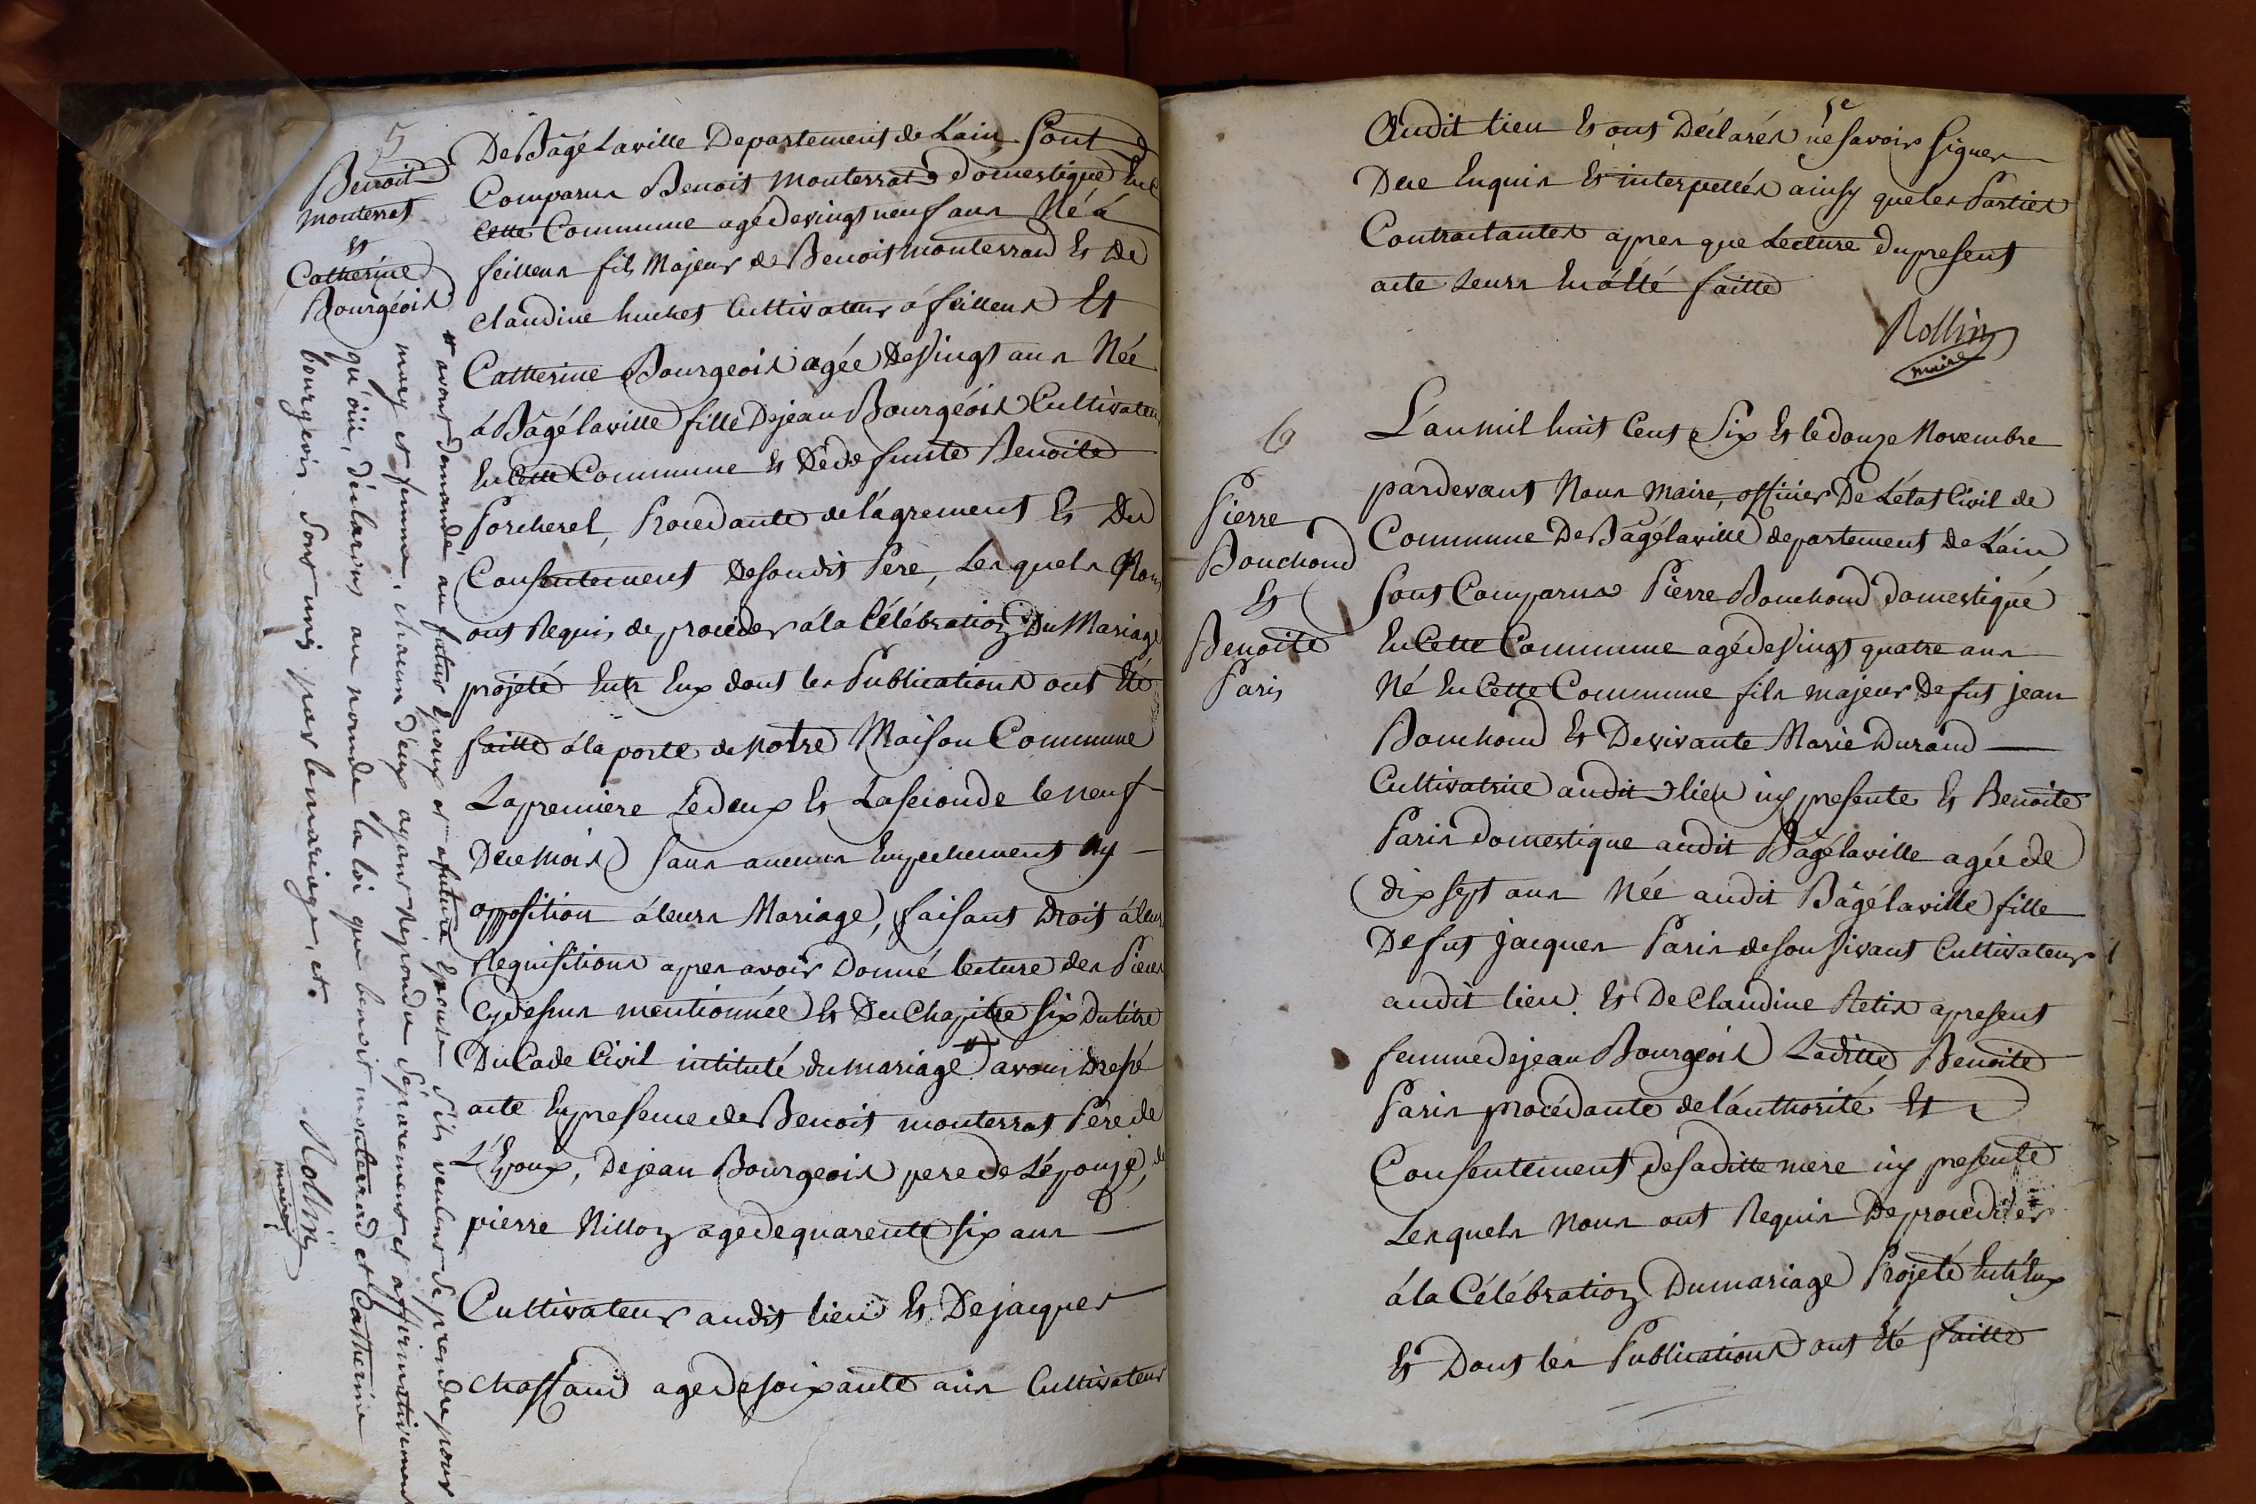 5
Benoit
monterrat
Et
Catherine
Bourgéois
De Bâgé Laville Departement de L'ain, Sont
Comparus Benoit monterrat domestique En
Cette Commune agé de vingt neuf ans Né à
feillens fils Majeur de Benoit monterrand Et De
claudine huchet Cultivateur á feillens Et
Catherine Bourgeois agée De Vingt ans Née
á Bâgé laville fille De jean Bourgéois Cultivateur
En Cette Commune Et De defunte Benoite
Porcherel, Procedante de l'agrement Et Du
Consentement De son dit Pere, Lesquels Nous
ont Requis de proceder á la Célébration Du Mariage
projeté Entr Eux dont les Publications ont Eté
faitte á la porte de notre Maison Commune
La premiere Le deux Et La seconde le neuf
De ce mois sans aucuns Empechement ny
opposition á leurs Mariage, faisant Droit á leur
Requisitions apres avoir Donné lecture des Pieces
Cy dessus mentionnée Et Du Chapitre Six Du titre
Du Code Civil intitulé du mariage # avons Dressé
acte En presence de Benoit monterrat Pere de
L'Epoux, De jean Bourgeois pere de L'épouse, de
pierre Nillon agé de quarente six ans
Cultivateur audit lieu Et De jacques
chassaud agé De soixante ans Cultivateur
# avons demandé au futur Epoux et a futura Epouse s'ils veulent se prendre pour
mary et femme, chacun d'eux ayant Répondu séparement et affirmativement
qu'oüi, déclarons au nom de la loi que benoit monterrand et Catherine
bourgeois sont unis par le mariage, et.
Rollin
maire
Audit lieu Et ont Déclarés ne savoir signer
De ce Enquis Et interpellés ainsy que les Parties
Contractantes apres que Lecture du present
acte Leurs En á Eté faitte
Rollin
maire
6
Pierre
Bouchoud
Et
Benoite
Paris
L'an mil huit Cent Six Et le douze Novembre
pardevant Nous Maire, officier De L'état Civil de
Commune De Bâgé laville departement de L'ain
Sont Comparus Pierre Bouchoud domestique
En Cette Commune agé de Vingt quatre ans
Né En Cette Commune fils majeur De fut jean
Bouchoud Et De vivante Marie Durand
Cultivatrice audit lieu icy presente Et Benoite
Paris domestique audit Bâgé laville agée de
dix sept ans Née audit Bâgé laville fille
De fut Jacques Paris de son Vivant Cultivateur
audit lieu Et De Claudine Retis apresent
femme de jean Bourgeois Laditte Benoite
Paris procédante de l'authorité Et
Consentement de saditte mere icy presente
Lesquels Nous ont Requis De proceder
á la Célébration Du mariage Projeté Entr'Eux
Et Dont les Publications ont Eté faitte